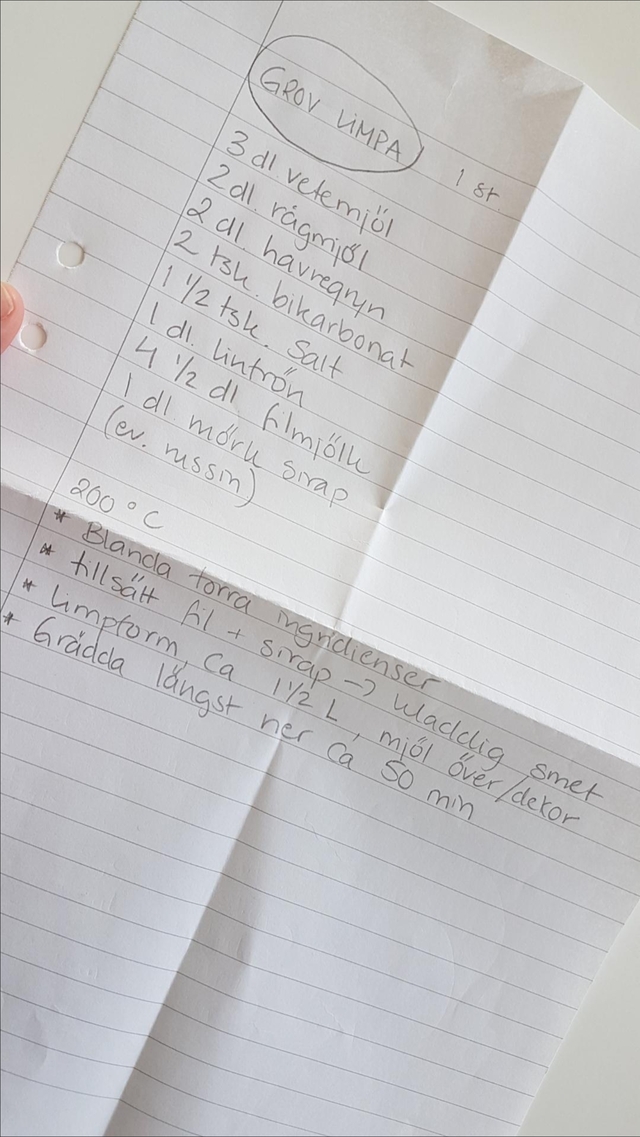 GROV LIMPA 1 st
3 dl vetemjöl
2 dl. rågmjöl
2 dl. havregryn
2 tsk. bikarbonat
1 1/2 tsk. salt
1 dl. lintrön
4 1/2 dl filmjölk
1 dl mörk sirap
(ev. russin)
200 °C
* Blanda torra ingridienser
* tillsätt fil + sirap → kladdig smet
* limpform, ca 1 1/2 L, mjöl över/dekor
* Grädda längst ner ca 50 min